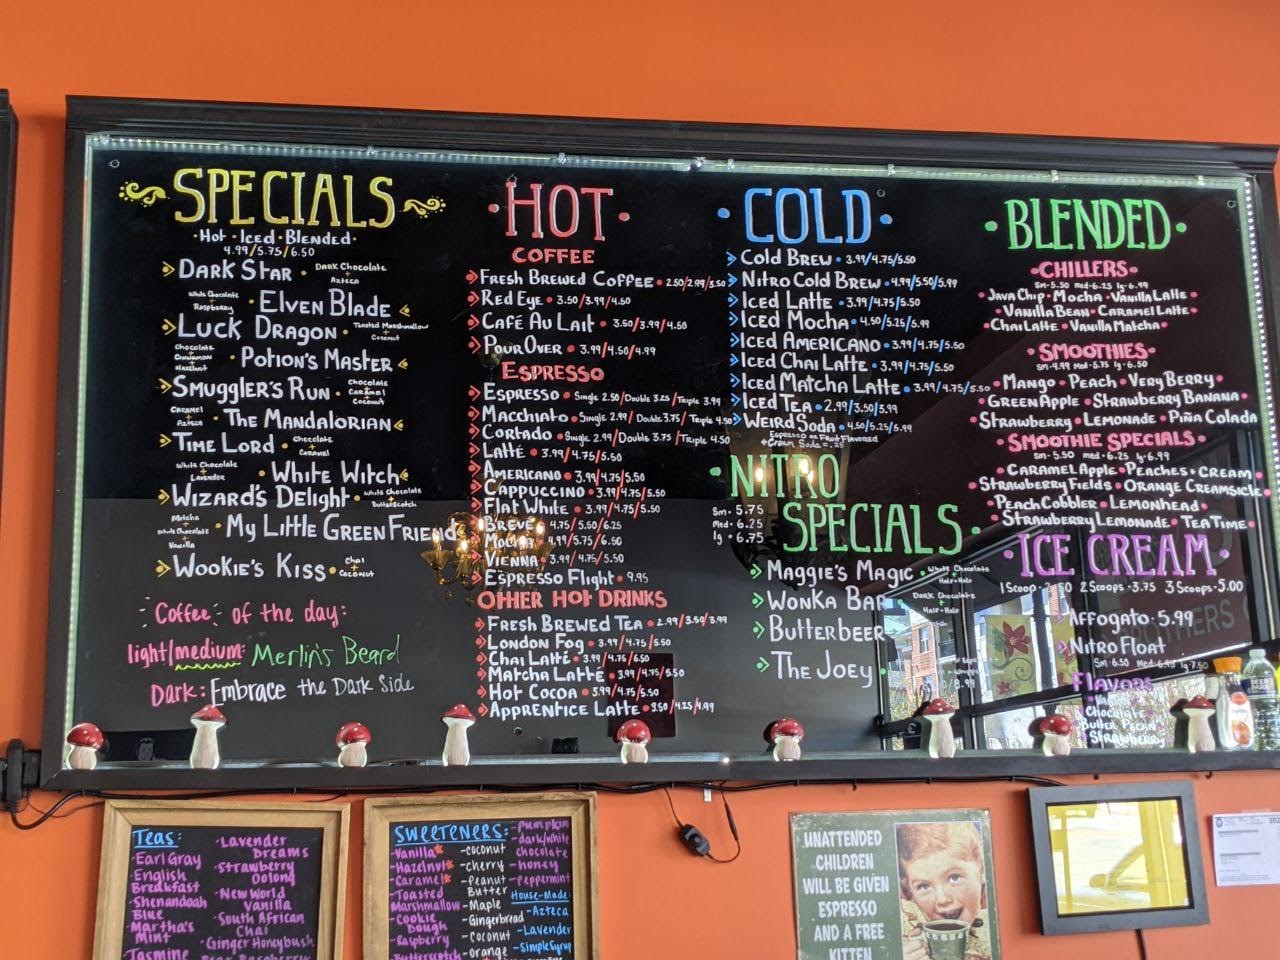 SPECIALS
·Hot·Iced·Blended·
4.99/5.75/6.50
DARK STAR · Dark Chocolate + Azteca
White Chocolate + Raspberry · ELVEN BLADE
LUCK DRAGON · Toasted Marshmallow + Coconut
Chocolate + Cinnamon + Hazelnut · POTION'S MASTER
SMUGGLER'S RUN · Chocolate + Caramel + Coconut
Caramel + Azteca · THE MANDALORIAN
TIME LORD · Chocolate + Caramel
White Chocolate + Lavender · WHITE WITCH
WIZARD'S DELIGHT · White Chocolate + Butterscotch
Matcha + White Chocolate + Vanilla · MY LITTLE GREEN FRIEND
WOOKIE'S KISS · Chai + Coconut
Coffee of the day:
light/medium: Merlin's Beard
Dark: Embrace the Dark Side
·HOT·
COFFEE
FRESH BREWED COFFEE · 2.50/2.99/3.50
RED EYE · 3.50/3.99/4.50
CAFÉ AU LAIT · 3.50/3.99/4.50
POUR OVER · 3.99/4.50/4.99
ESPRESSO
ESPRESSO · Single 2.50/Double 3.25/Triple 3.99
MACCHIATO · Single 2.99/Double 3.75/Triple 4.50
CORTADO · Single 2.99/Double 3.75/Triple 4.50
LATTÉ · 3.99/4.75/5.50
AMERICANO · 3.99/4.75/5.50
CAPPUCCINO · 3.99/4.75/5.50
FLAT WHITE · 3.99/4.75/5.50
BREVÉ · 4.75/5.50/6.25
MOCHA · 4.99/5.75/6.50
VIENNA · 3.99/4.75/5.50
ESPRESSO FLIGHT · 9.95
OTHER HOT DRINKS
FRESH BREWED TEA · 2.99/3.50/3.99
LONDON FOG · 3.99/4.75/5.50
CHAI LATTÉ · 3.99/4.75/5.50
MATCHA LATTÉ · 3.99/4.75/5.50
HOT COCOA · 3.99/4.75/5.50
APPRENTICE LATTE · 3.50/4.25/4.99
·COLD·
COLD BREW · 3.99/4.75/5.50
NITRO COLD BREW · 4.99/5.50/5.99
ICED LATTE · 3.99/4.75/5.50
ICED MOCHA · 4.50/5.25/5.99
ICED AMERICANO · 3.99/4.75/5.50
ICED CHAI LATTE · 3.99/4.75/5.50
ICED MATCHA LATTE · 3.99/4.75/5.50
ICED TEA · 2.99/3.50/3.99
WEIRD SODA · 4.50/5.25/5.99
Espresso or Fruit Flavored
+Cream Soda = .25
·NITRO SPECIALS·
Sm - 5.75
Med - 6.25
lg - 6.75
MAGGIE'S MAGIC · White Chocolate + Half+Half
WONKA BAR Dark Chocolate + Half+Half
BUTTERBEER
THE JOEY
8.99
·BLENDED·
·CHILLERS·
Sm-5.50 med-6.25 lg-6.99
JAVA CHIP · MOCHA · VANILLA LATTE
VANILLA BEAN · CARAMEL LATTE
CHAI LATTE · VANILLA MATCHA
·SMOOTHIES·
Sm-4.99 Med-5.75 lg-6.50
MANGO · PEACH · VERY BERRY
GREEN APPLE · STRAWBERRY BANANA
STRAWBERRY · LEMONADE · PIÑA COLADA
·SMOOTHIE SPECIALS·
Sm-5.50 med-6.25 lg-6.99
CARAMEL APPLE · PEACHES + CREAM
STRAWBERRY FIELDS · ORANGE CREAMSICLE
PEACH COBBLER · LEMONHEAD
STRAWBERRY LEMONADE · TEA TIME
·ICE CREAM·
1 Scoop 2 Scoops·3.75 3 Scoops·5.00
AFFOGATO·5.99
NITRO FLOAT
Sm·6.50 Med·6.95 lg·7.50
FLAVORS
Chocolate
Butter Pecan
Strawberry
TEAS:
-Earl Gray
-English Breakfast
-Shenandoah Blue
-Martha's Mint
-Jasmine
-Lavender Dreams
-Strawberry Oolong
-New World Vanilla
-South African Chai
-Ginger Honeybush
SWEETENERS:
-Vanilla*
-Hazelnut*
-Caramel*
-Toasted Marshmallow
-Cookie Dough
-Raspberry
-Butterscotch
-coconut
-cherry
-Peanut Butter
-Maple
-Gingerbread
-Coconut
-orange
-Pumpkin
-dark/white chocolate
-honey
-peppermint
House-Made:
-Azteca
-Lavender
-simple Syrup
UNATTENDED
CHILDREN
WILL BE GIVEN
ESPRESSO
AND A FREE
KITTEN